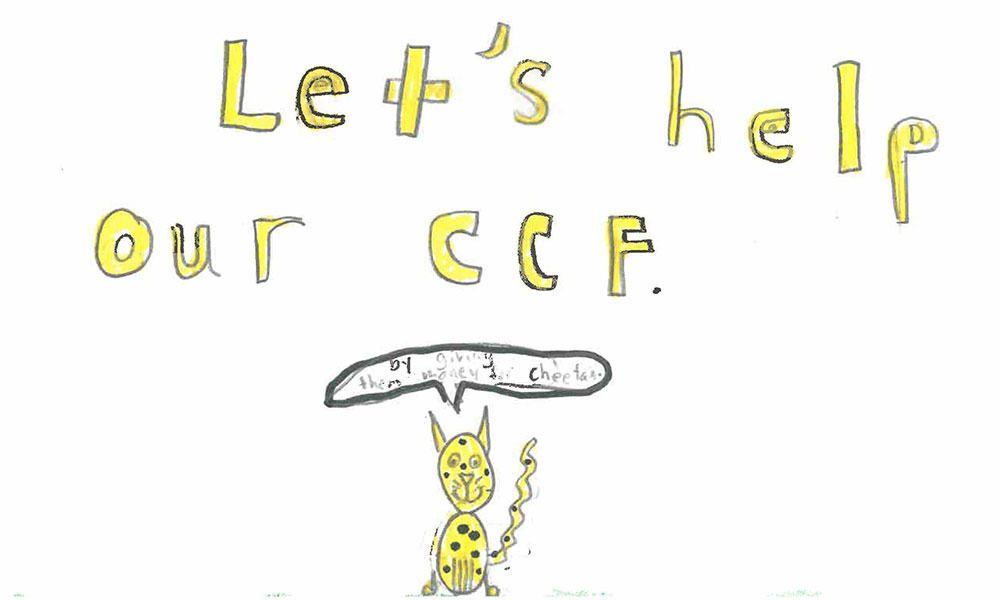 Let's help
our CCF.
by giving
them money for cheetas.